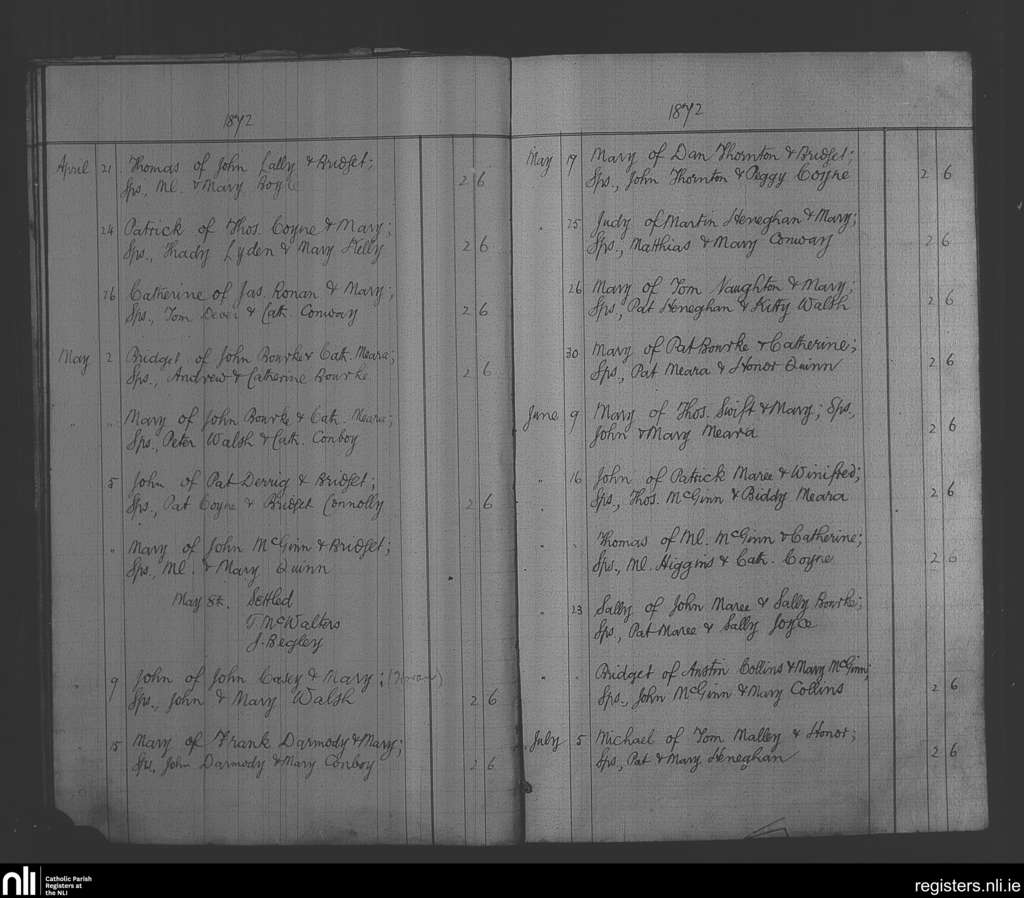 1872
April 21 Thomas of John Lally & Bridget;
Sps., Ml. & Mary Boyle 2 6
24 Patrick of Thos. Coyne & Mary;
Sps., Thady Lyden & Mary Kelly 2 6
26 Catherine of Jas. Ronan & Mary;
Sps., Tom & Cath. Conway 2 6
May 2 Bridget of John Bourke & Cath. Meara;
Sps., Andrew & Catherine Bourke 2 6
" " Mary of John Bourke & Cath. Meara;
Sps., Peter Walsh & Cath. Conboy
5 John of Pat Derrig & Bridget;
Sps., Pat Coyne & Bridget Connolly 2 6
" Mary of John McGinn & Bridget;
Sps., Ml. & Mary Quinn
May 8th. Settled
T. McWalters
J. Begley
" 9 John of John Casey & Mary;
Sps., John & Mary Walsh 2 6
15 Mary of Frank Darmody & Mary;
Sps. John Darmody & Mary Conboy 2 6
1872
May 19 Mary of Dan Thornton & Bridget;
Sps., John Thornton & Peggy Coyne 2 6
" 25 Judy of Martin Heneghan & Mary;
Sps., Matthias & Mary Conway 2 6
26 Mary of Tom Naughton & Mary;
Sps., Pat Heneghan & Kitty Walsh 2 6
30 Mary of Pat Bourke & Catherine;
Sps., Pat Meara & Honor Quinn 2 6
June 9 Mary of Thos. Swift & Mary; Sps.,
John & Mary Meara 2 6
" 16 John of Patrick Maree & Winifred;
Sps., Thos. McGinn & Biddy Meara 2 6
" " Thomas of Ml. McGinn & Catherine;
Sps., Ml. Higgins & Cath. Coyne 2 6
" 23 Sally of John Maree & Sally Bourke;
Sps., Pat Maree & Sally Joyce
" " Bridget of Austin Collins & Mary McGinn;
Sps., John McGinn & Mary Collins 2 6
July 5 Michael of Tom Malley & Honor;
Sps., Pat & Mary Heneghan 2 6
nli
Catholic Parish
Registers at
the NLI
registers.nli.ie